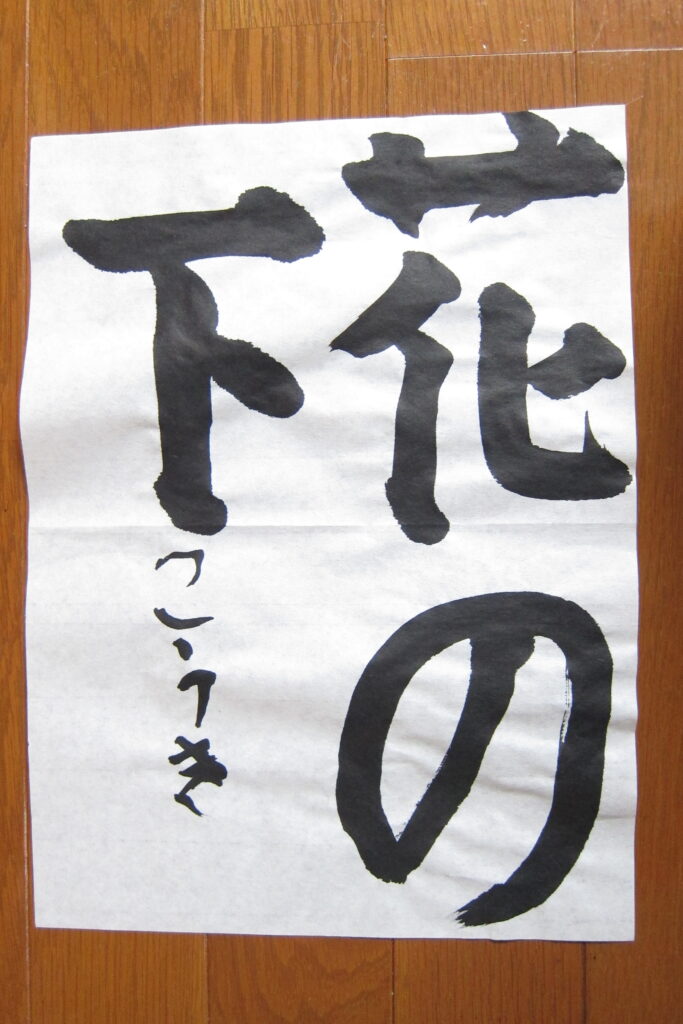 花の
下
こうき